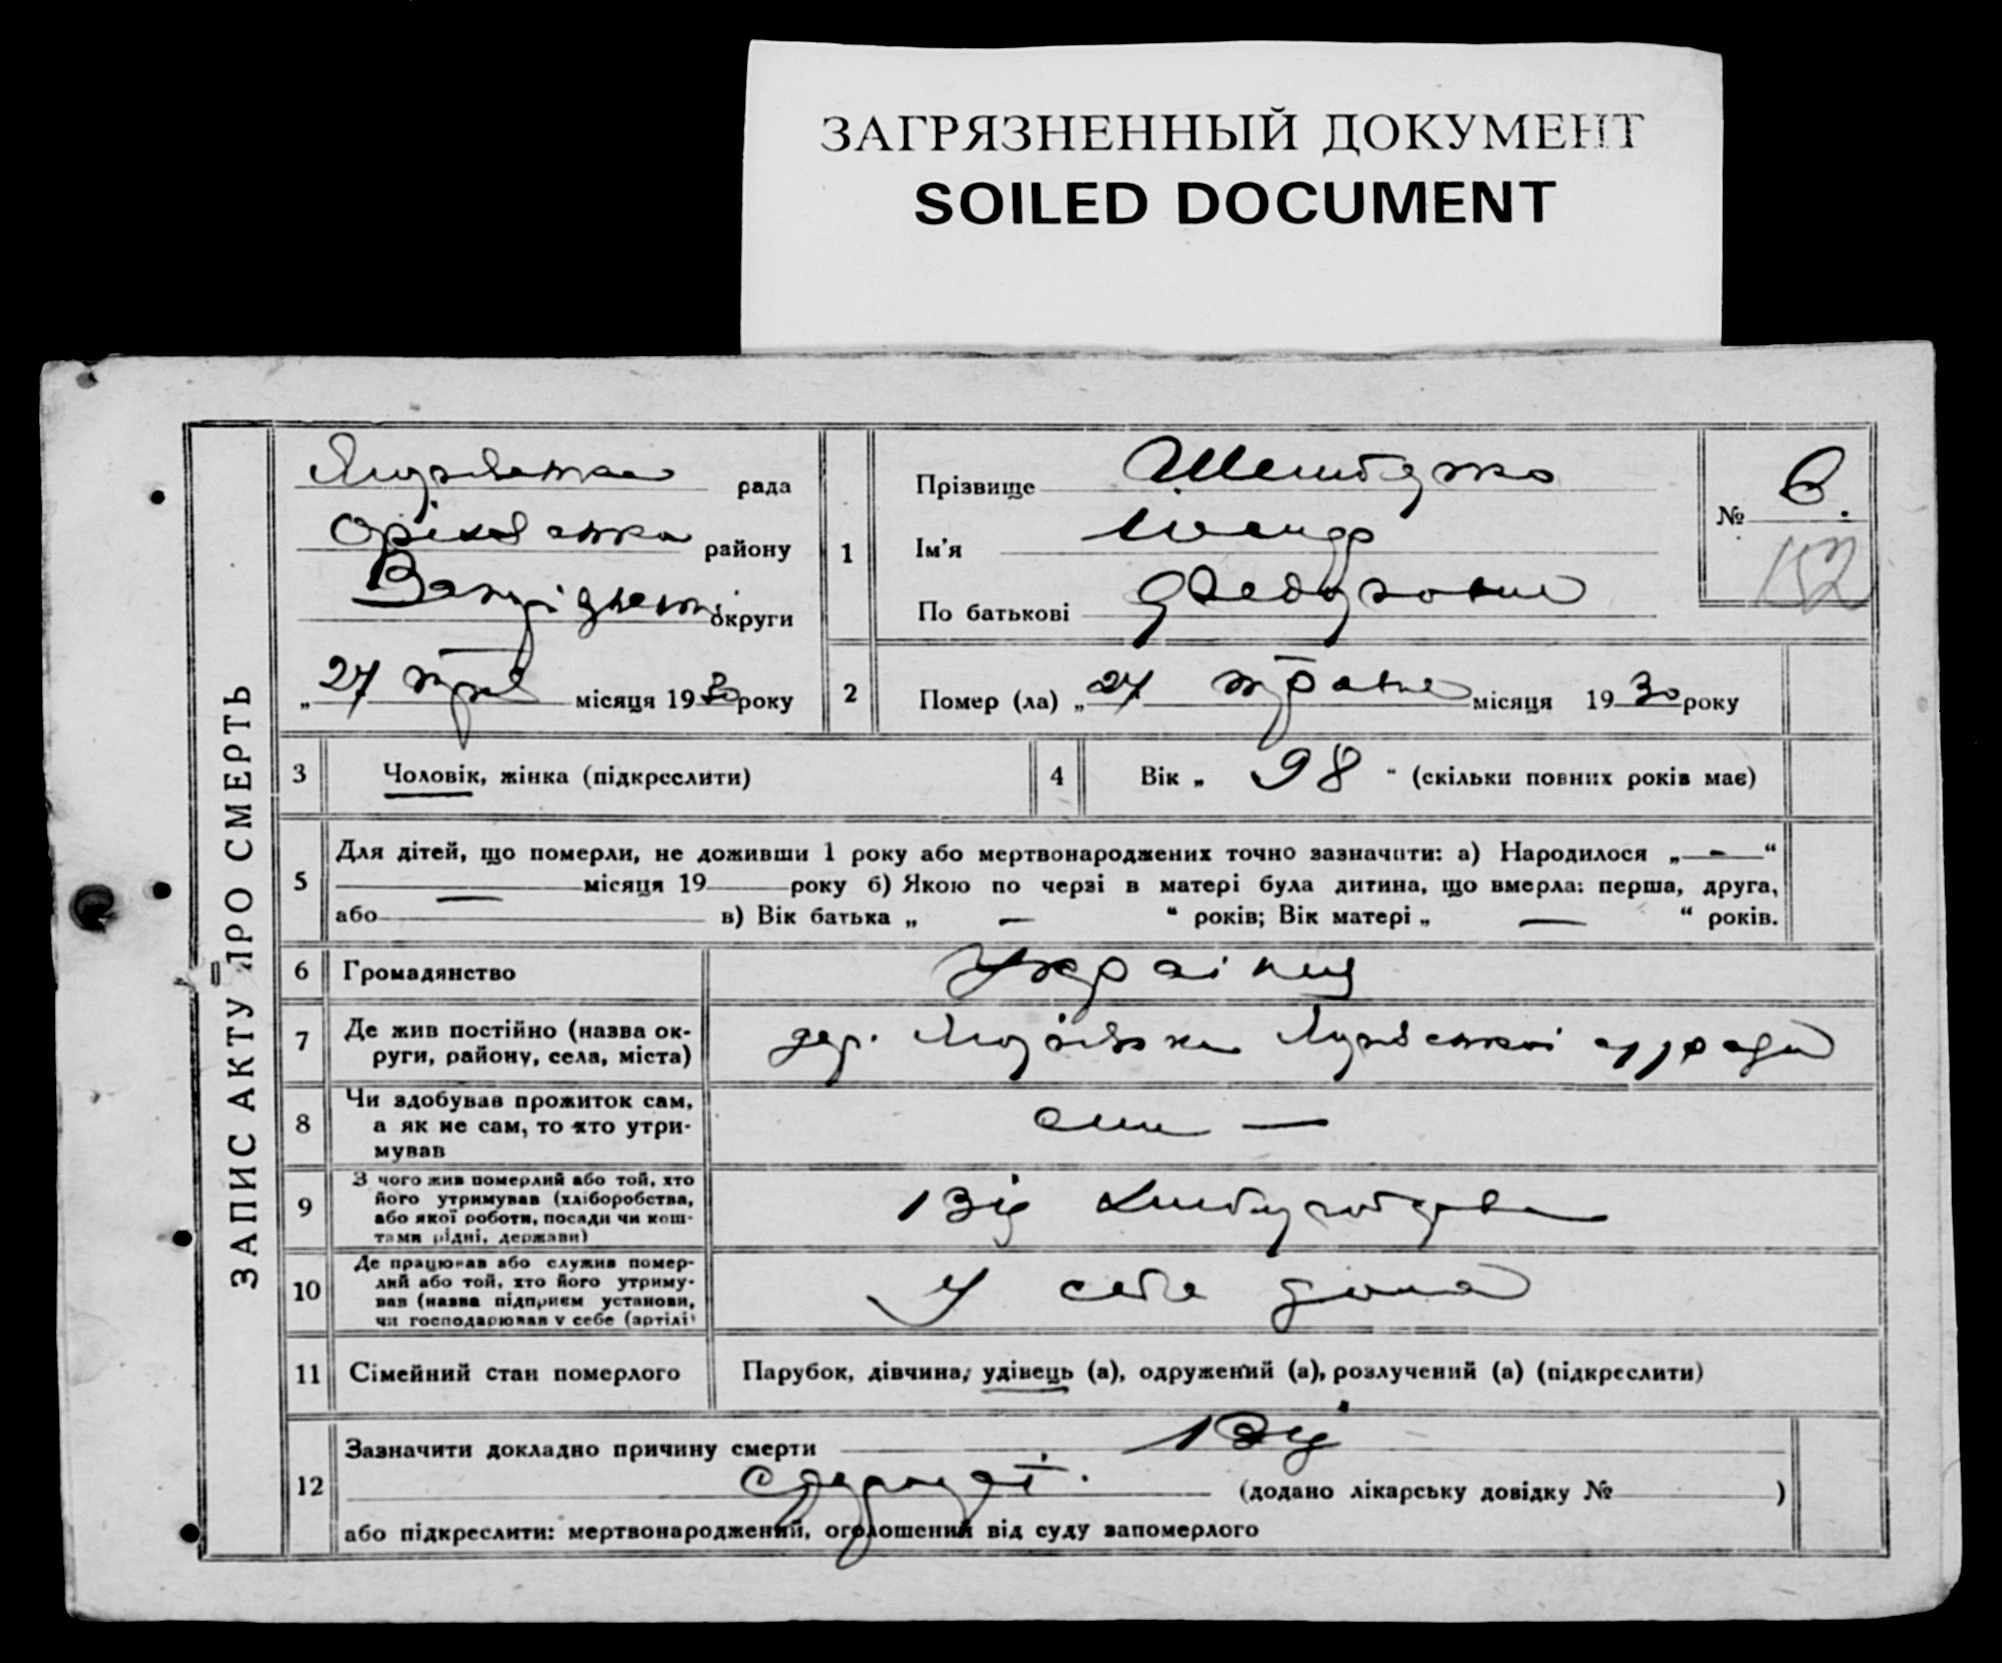 ЗАГРЯЗНЕННЫЙ ДОКУМЕНТ
SOILED DOCUMENT
ЗАПИС АКТУ ПРО СМЕРТЬ
рада
району
округи
„27 місяця 1930 року
1
Прізвище
Ім'я
По батькові
№ 6.
152
2
Помер (ла) „27 травня місяця 1930 року
3
Чоловік, жінка (підкреслити)
4
Вік „ 98 " (скільки повних років має)
5
Для дітей, що померли, не доживши 1 року або мертвонароджених точно зазначити: а) Народилося „—“
— місяця 19 року б) Якою по черзі в матері була дитина, що вмерла: перша, друга,
або в) Вік батька „ — “ років; Вік матері „ — “ років.
6
Громадянство
Україн
7
Де жив постійно (назва ок-
руги, району, села, міста)
дер.
8
Чи здобував прожиток сам,
а як не сам, то хто утри-
мував
сам —
9
З чого жив померлий або той, хто
його утримував (хліборобства,
або якої роботи, посади чи кош-
тами рідні, держави)
Від хліборобства
10
Де працював або служив помер-
лий або той, хто його утриму-
вав (назва підприєм установи,
чи господарював у себе (артілі)
У себе дома
11
Сімейний стан померлого
Парубок, дівчина, удівець (а), одружений (а), розлучений (а) (підкреслити)
12
Зазначити докладно причину смерти Від
(додано лікарську довідку № )
або підкреслити: мертвонароджений, оголошений від суду запомерлого